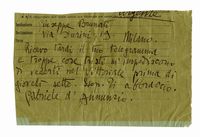 Urgente
Giuseppe Brunati
Via Durini, 19 Milano
Ricevo tardi il tuo telegramma
e troppe cose tristi m'impediscono
di vederti nel Vittoriale prima di
giovedì sette. Ti abbraccio.
Gabriele d'Annunzio.